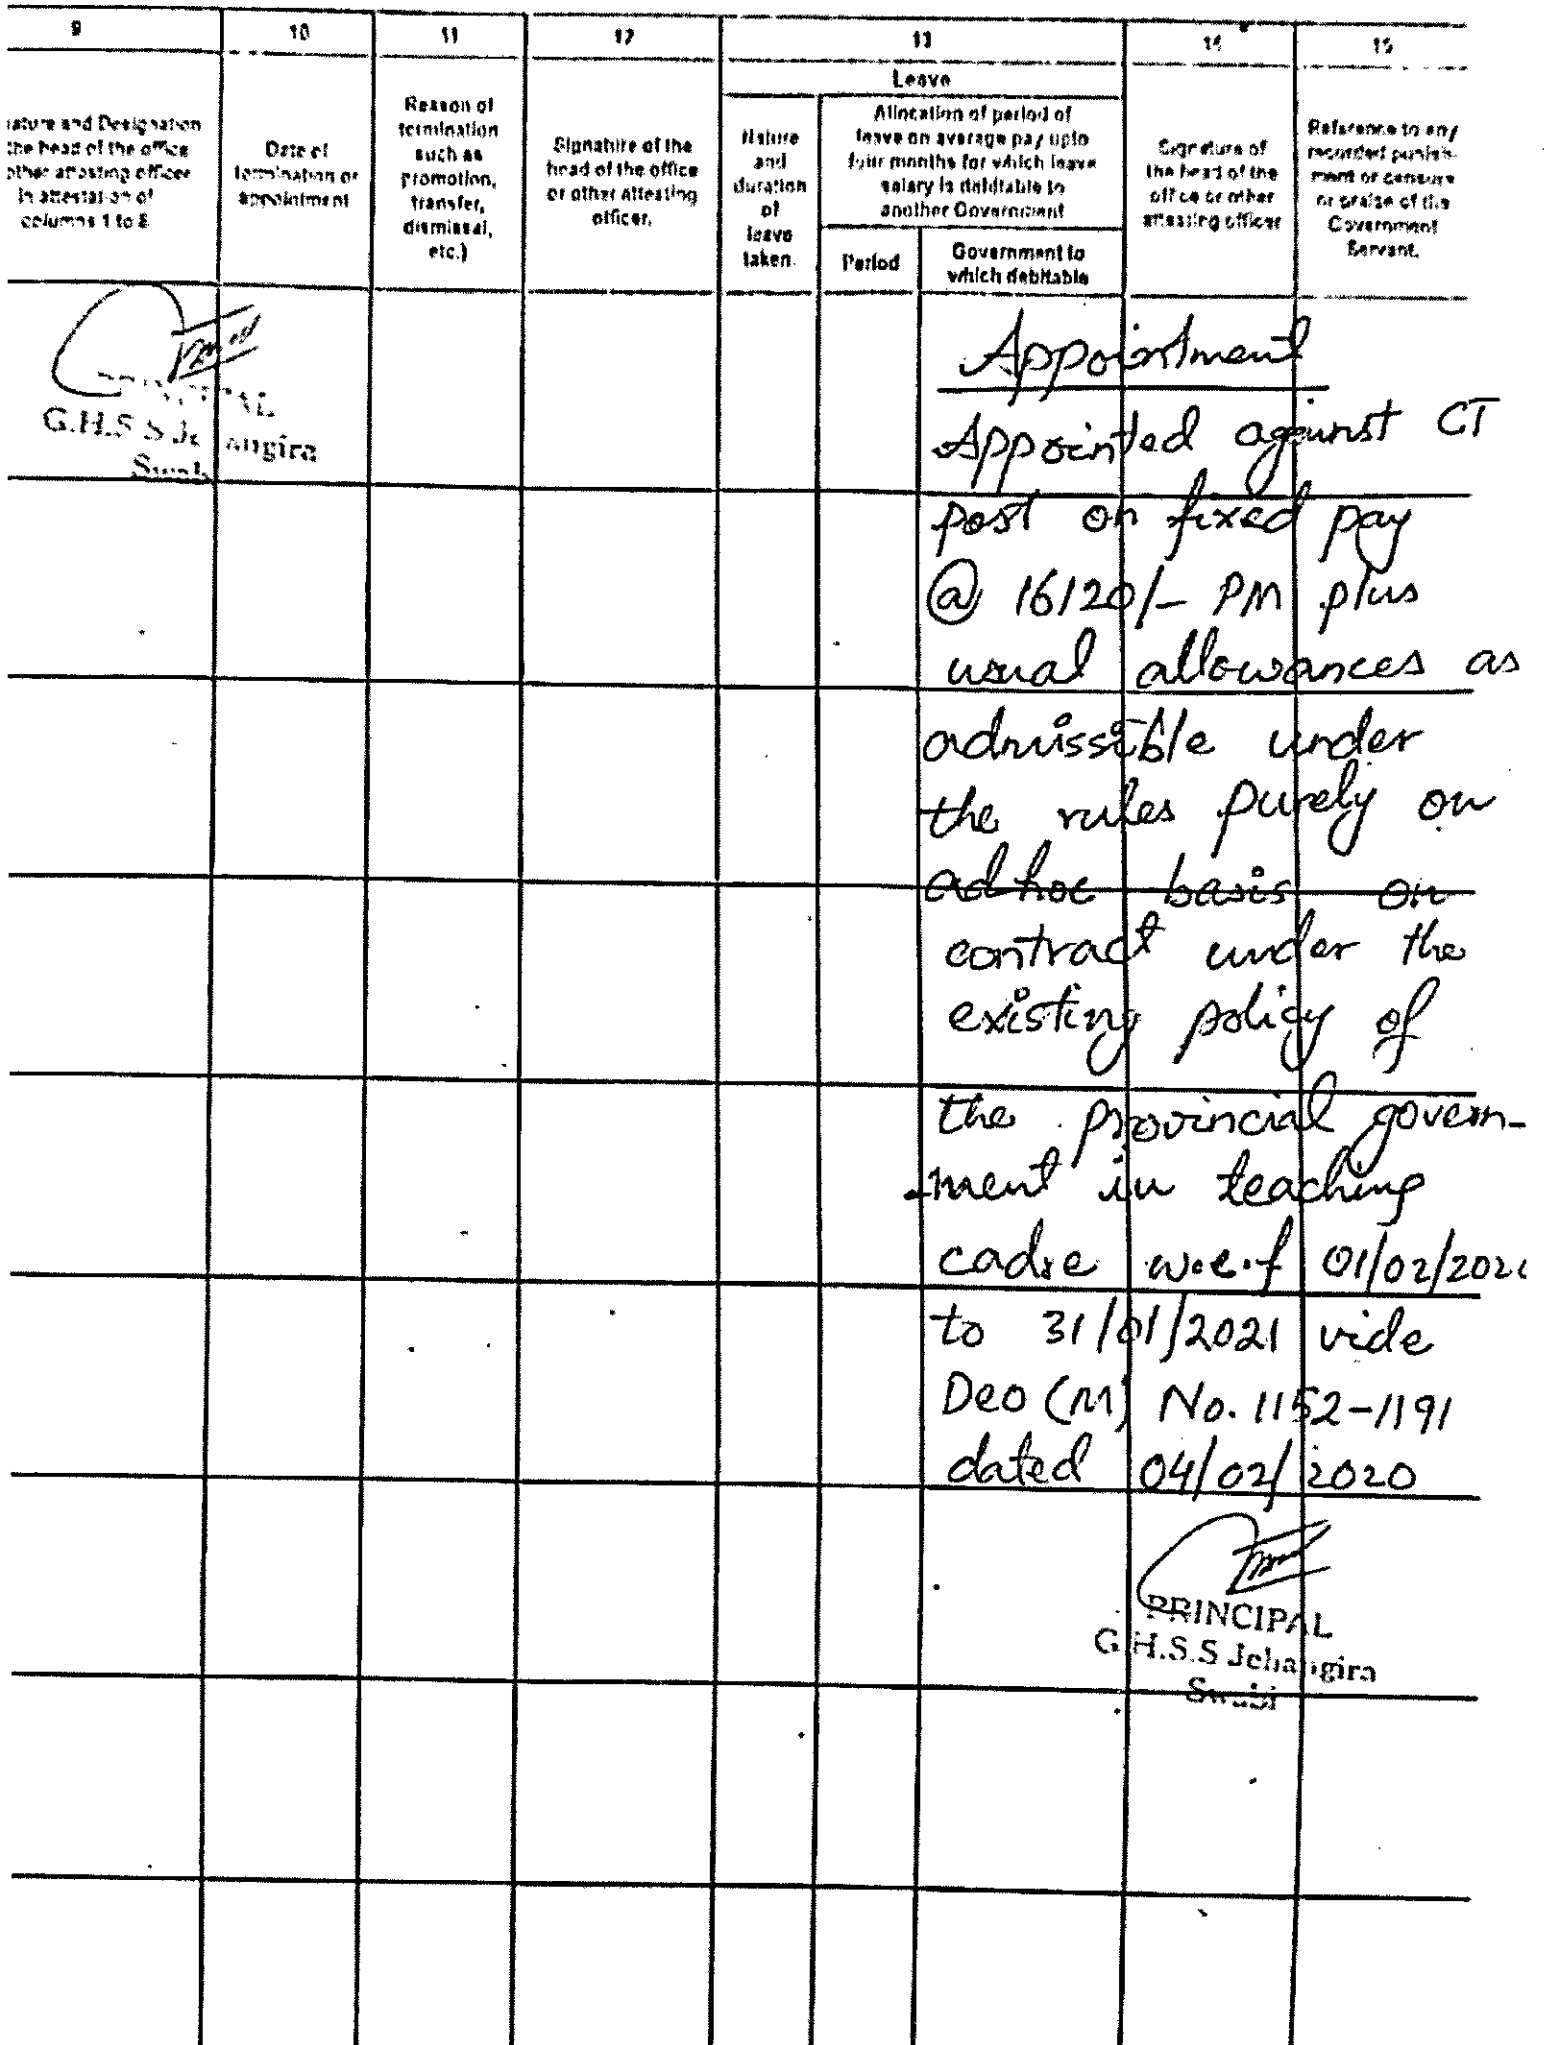 9 10 11 12 13 14 15
Leave
and Designation
the head of the office
other attesting officer
in attestation of
columns 1 to 8
Date of
termination or
appointment
Reason of
termination
such as
promotion,
transfer,
dismissal,
etc.)
Signature of the
head of the office
or other attesting
officer.
Nature
and
duration
of
leave
taken.
Allocation of period of
leave on average pay upto
four months for which leave
salary is debitable to
another Government
Period
Government to
which debitable
Signature of
the head of the
office or other
attesting officer
Reference to any
recorded punish-
ment or censure
or praise of the
Government
Servant.
G.H.S.S
Appointment
Appointed against CT
post on fixed pay
@ 16120/- PM plus
usual allowances as
admissible under
the rules purely on
adhoc basis on
contract under the
existing policy of
the provincial govern-
-ment in teaching
cadre w.e.f 01/02/202
to 31/01/2021 vide
Deo (M) No. 1152-1191
dated 04/02/2020
PRINCIPAL
G.H.S.S Jehangira
Swabi